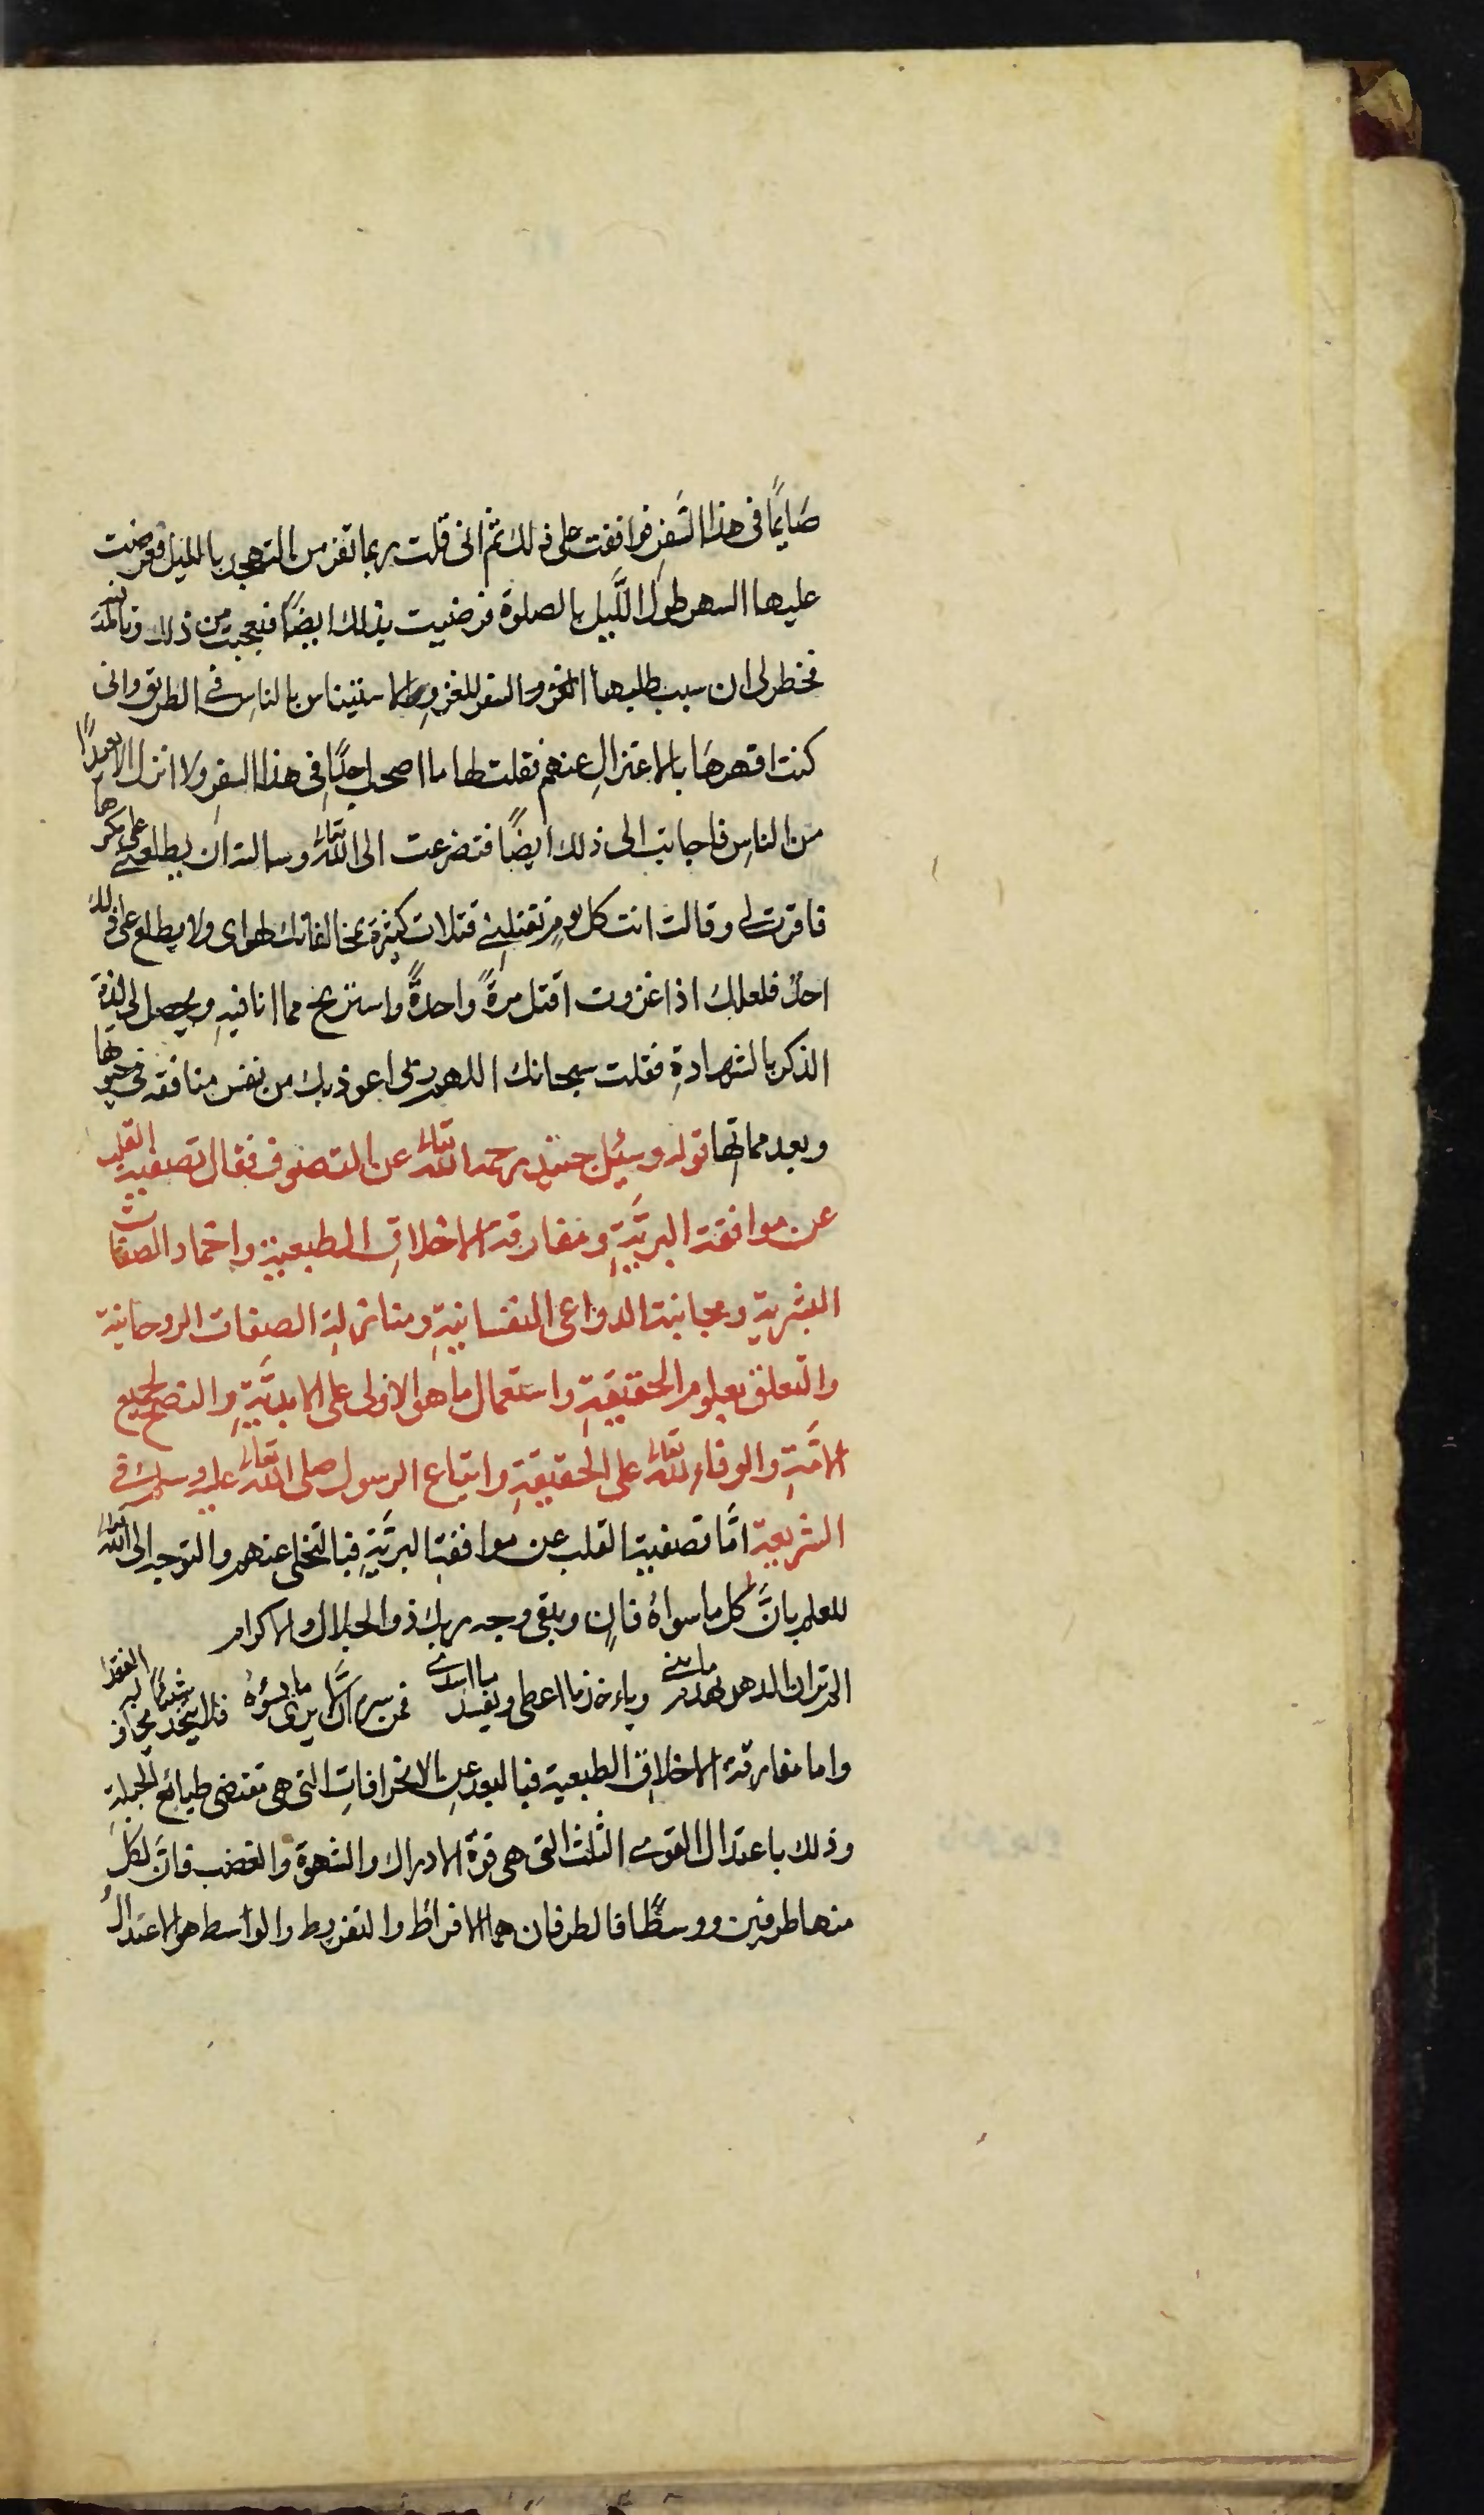 صَايمًا في هذا السَّفر فوافقت على ذلك ثم اني قلت ربما تفر من التهجد بالليل فعرضت
عليها السهر طول اللَّيل بالصلوة فرضيت بذلك ايضًا فتعجبت من ذلك وتأملت
فخطر لى ان سبب طلبها الغزو السفر للغزو الاستيناس بالناسِ في الطريق وانى
كنت اقهرهَا بالاعتزالِ عنهم فقلت لها ما اصحب احدًا في هذا السفرِ ولا انزل الا بعيدًا
من الناسِ فاجابت الى ذلك ايضًا فتضرعت الى الله تعالى وسالته ان يطلعنى على مكرها
فاقرت لى وقالت انت كل يومٍ تقتلنى قتلات كثيرة بمخالفاتك لهواى ولا يطلع على ذلك
احدٌ فلعلك اذا غزوت اقتل مرةً واحدةً واستريح مما انا فيهِ ويحصل لى لذة
الذكر بالشهادةِ فقلت سبحانك اللهم انى اعوذ بك من نفس منافقة في حيوتها
وبعد مماتها قوله وسئِل جنيد رحمه الله تعالى عن التصوف فقال تصفية القلب
عن موافقة البريَّةِ ومفارقة الاخلاقِ الطبعية واخماد الصفات
البشرية ومجانبة الدواعى النفسانيةِ ومنازلة الصفات الروحانية
والتعلق بعلوم الحقيقةِ واستعمال ما هو الاولى على الابديَّةِ والنصح لجميع
الامَّةِ والوفاء لله تعالى على الحقيقةِ واتباع الرسول صلى الله تعالى عليه وسلم في
الشريعة امَّا تصفية القلب عن موافقة البريَّةِ فبالتخلى عنهم والتوجه الى الله تعالى
للعلم بانَّ كل ما سواهُ فانٍ ويبقى وجه ربك ذو الجلال والاكرام
الم تر ان الدهر يهدم ما بنى وياءخذ ما اعطى ويفسد ما اسدى فمن سره ان لا يرى ما يسوؤهُ فلا يتخذ شيئًا يخاف له الفقدا
واما مفارقة الاخلاقِ الطبعية فبالبعد عن الانحرافاتِ التى هى تقتضى طبائع الجملةِ
وذلك باعتدال القوى الثلث التى هى قوة الادراك والشهوة والغضب فانَّ لكل
منها طرفين ووسطًا فالطرفان هما الافراط والتفريط والواسط هو الاعتدالُ